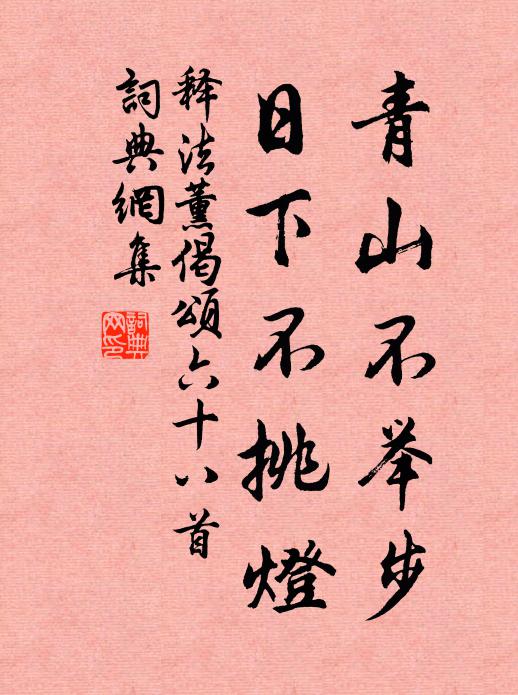 青山不举步
日下不挑燈
释法薰偈頌六十八首
詞典網集
詞典網印